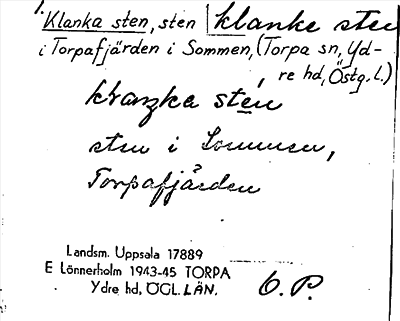 1.
Klanka sten, sten klanke sten
i Torpafjärden i Sommen, (Torpa sn, Yd-
re hd, Östg. l.)
sten
sten i Sommen,
Torpafjärden
Landsm. Uppsala 17889
E Lönnerholm 1943-45 TORPA
Ydre hd, ÖGL. LÄN.